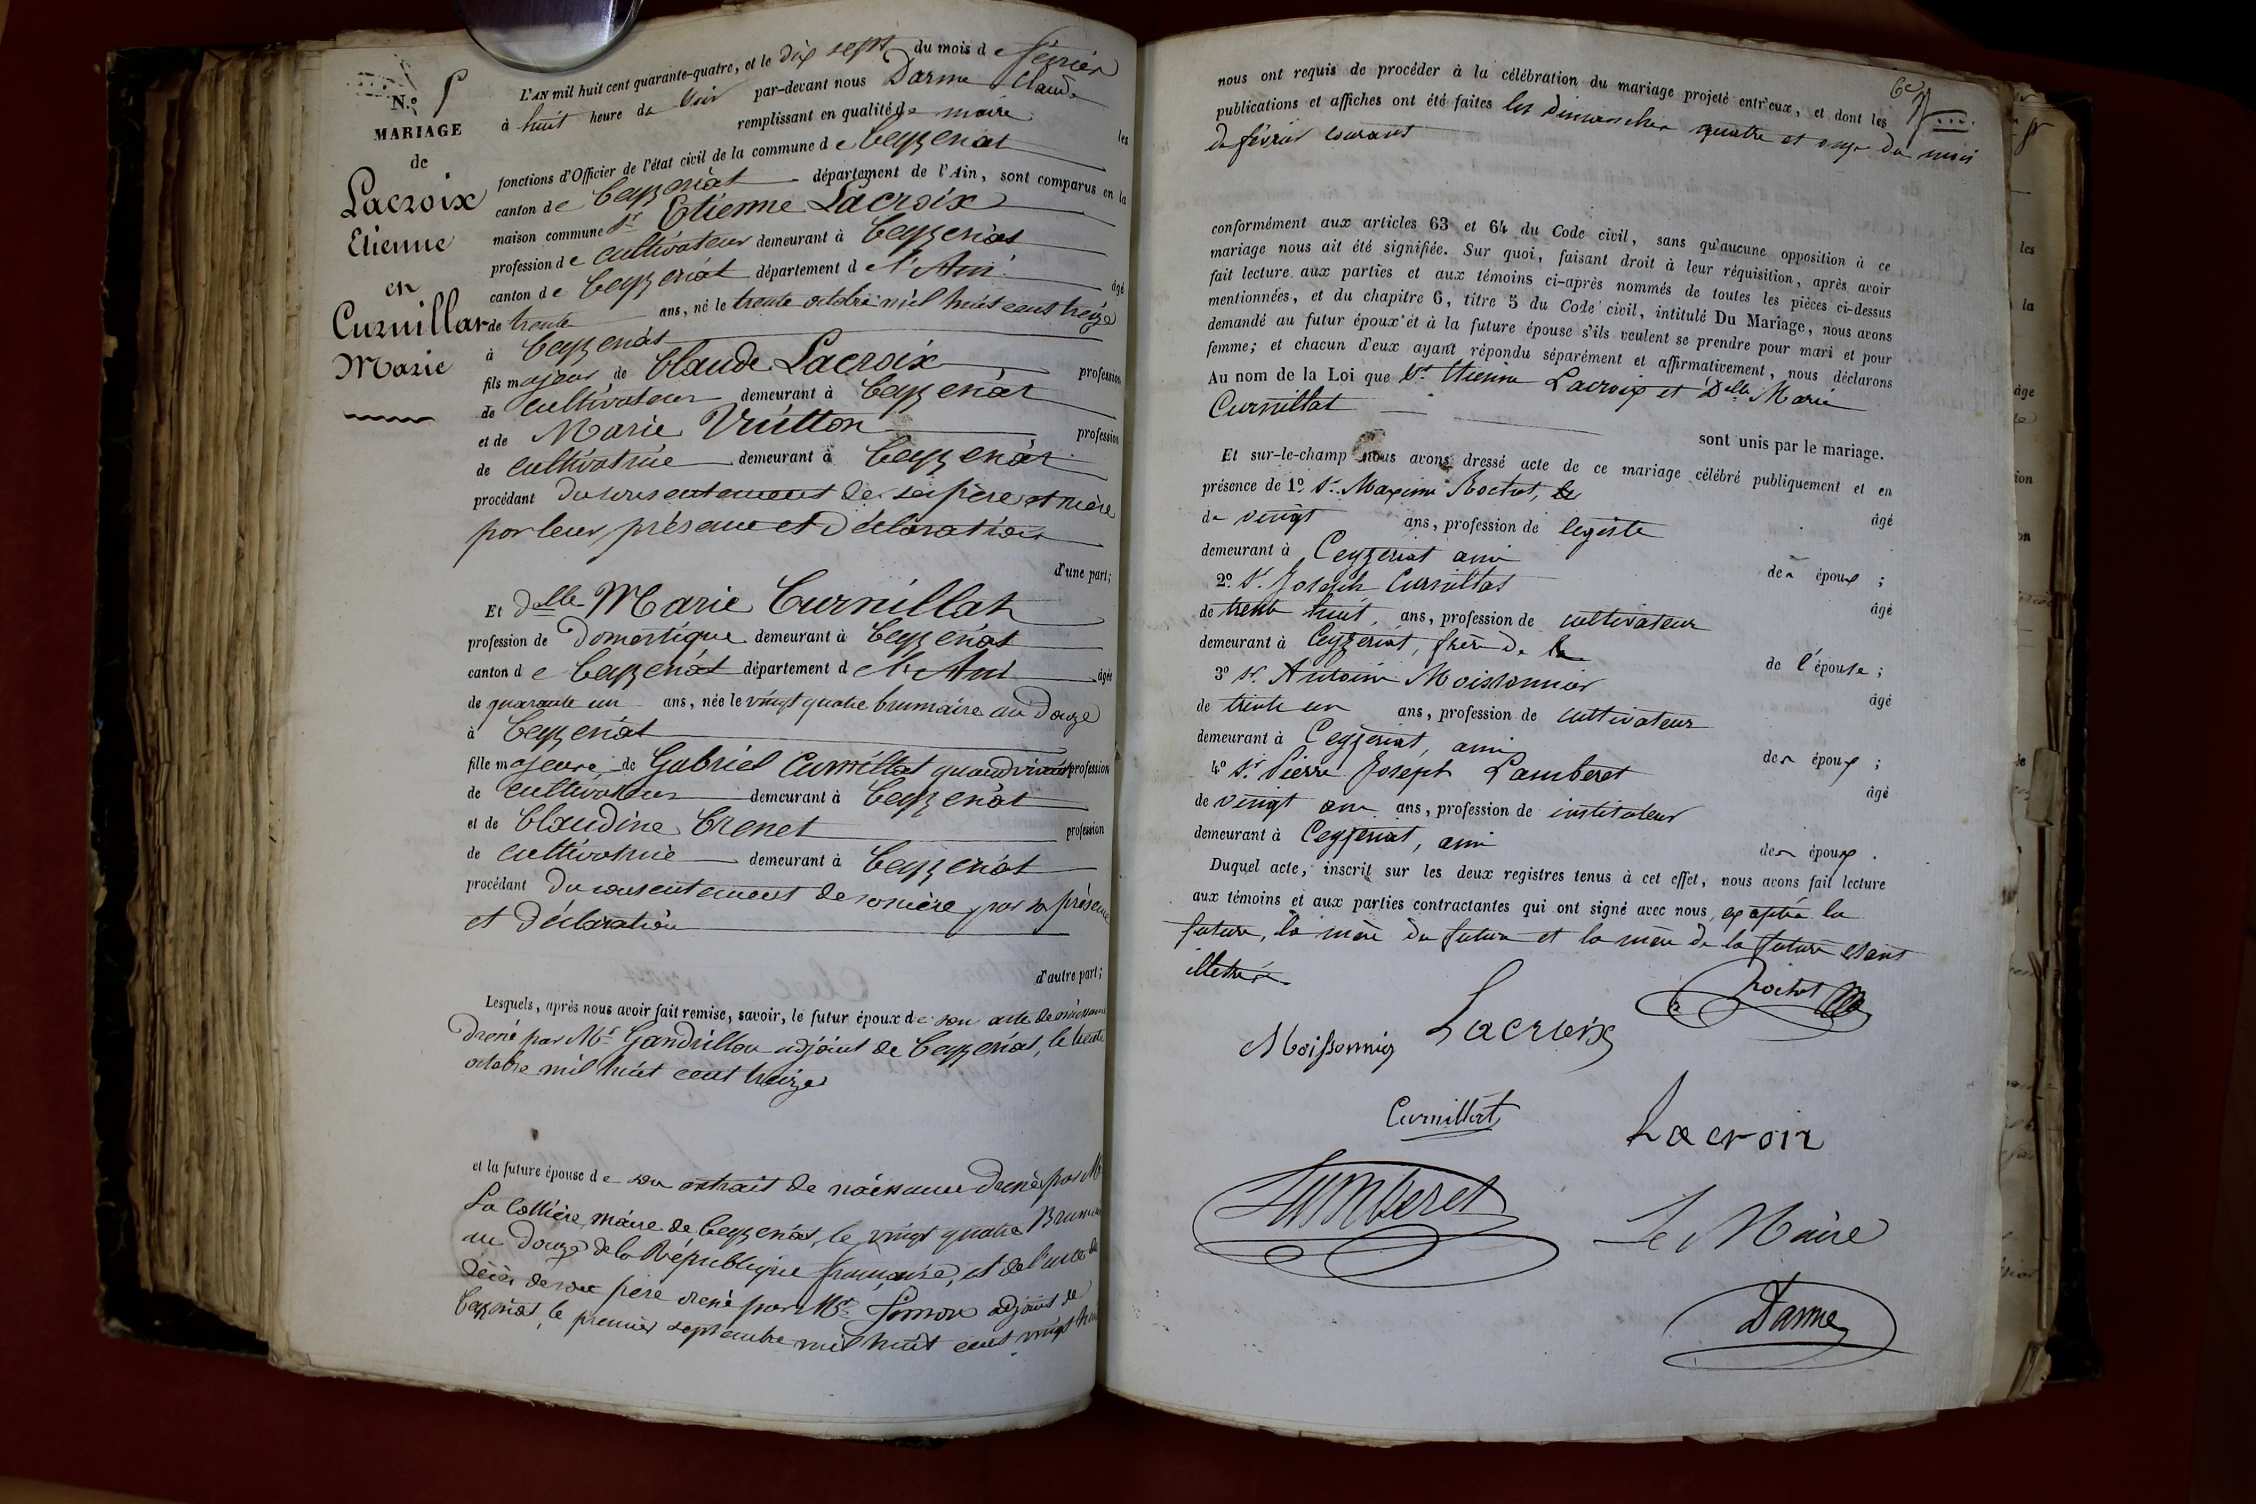 N.º 5
MARIAGE
de
Lacroix
Etienne
en
Curnillat
Marie
L'AN mil huit cent quarante-quatre, et le dix sept du mois de février
à huit heure du soir par-devant nous Darme Claude
remplissant en qualité de maire les
fonctions d'Officier de l'état civil de la commune de Ceyzeriat
canton de Ceyzeriat département de l'Ain, sont comparus en la
maison commune Sr Etienne Lacroix
profession de cultivateur demeurant à Ceyzeriat
canton de Ceyzeriat département de l'Ain âgé
de trente ans, né le trente octobre mil huit cent treize
à Ceyzeriat
fils majeur de Claude Lacroix profession
de cultivateur demeurant à Ceyzeriat
et de Marie Vuitton profession
de cultivatrice demeurant à Ceyzeriat
procédant du consentement de ses père et mère
par leur présence et déclaration
d'une part;
Et Delle Marie Curnillat
profession de domestique demeurant à Ceyzeriat
canton de Ceyzeriat département de l'Ain âgée
de quarante un ans, née le vingt quatre brumaire an douze
à Ceyzeriat
fille majeure de Gabriel Curnillat quand vivait profession
de cultivateur demeurant à Ceyzeriat
et de Claudine Crenet profession
de cultivatrice demeurant à Ceyzeriat
procédant du consentement de sa mère par sa présence
et déclaration
d'autre part;
Lesquels, après nous avoir fait remise, savoir, le futur époux de son acte de naissance
dressé par Mr Gandrillon adjoint de Ceyzeriat, le trente
octobre mil huit cent treize
et la future épouse de son extrait de naissance dressé par M
La Collière, maire de Ceyzeriat, le vingt quatre Brumaire
an douze de la République française, et de l'acte de
décès de son père dressé par Mr Simon adjoint de
Ceyzeriat, le premier septembre mil huit cent vingt huit
nous ont requis de procéder à la célébration du mariage projeté entr'eux, et dont les
publications et affiches ont été faites les dimanches quatre et onze du mois
de février courant
conformément aux articles 63 et 64 du Code civil, sans qu'aucune opposition à ce
mariage nous ait été signifiée. Sur quoi, faisant droit à leur réquisition, après avoir
fait lecture aux parties et aux témoins ci-après nommés de toutes les pièces ci-dessus
mentionnées, et du chapitre 6, titre 5 du Code civil, intitulé Du Mariage, nous avons
demandé au futur époux et à la future épouse s'ils veulent se prendre pour mari et pour
femme; et chacun d'eux ayant répondu séparément et affirmativement, nous déclarons
Au nom de la Loi que Sr Etienne Lacroix et Delle Marie
Curnillat
sont unis par le mariage.
Et sur-le-champ nous avons dressé acte de ce mariage célébré publiquement et en
présence de 1º Sr Maxime Rochet, âgé
de vingt ans, profession de legiste
demeurant à Ceyzeriat ami des époux ;
2º Sr Joseph Curnillat âgé
de trente huit ans, profession de cultivateur
demeurant à Ceyzeriat, frère de l'épouse ;
3º Sr Antoine Moissonnier âgé
de trente un ans, profession de cultivateur
demeurant à Ceyzeriat, ami des époux ;
4º Sr Pierre Joseph Lamberet âgé
de vingt ans, profession de instituteur
demeurant à Ceyzeriat, ami des époux.
Duquel acte, inscrit sur les deux registres tenus à cet effet, nous avons fait lecture
aux témoins et aux parties contractantes qui ont signé avec nous, excepté la
future, la mère du futur et la mère de la future étant
illettrés.
Rochet
Moissonnier Lacroix
Curnillat Lacroix
Lamberet
Le Maire
Darme